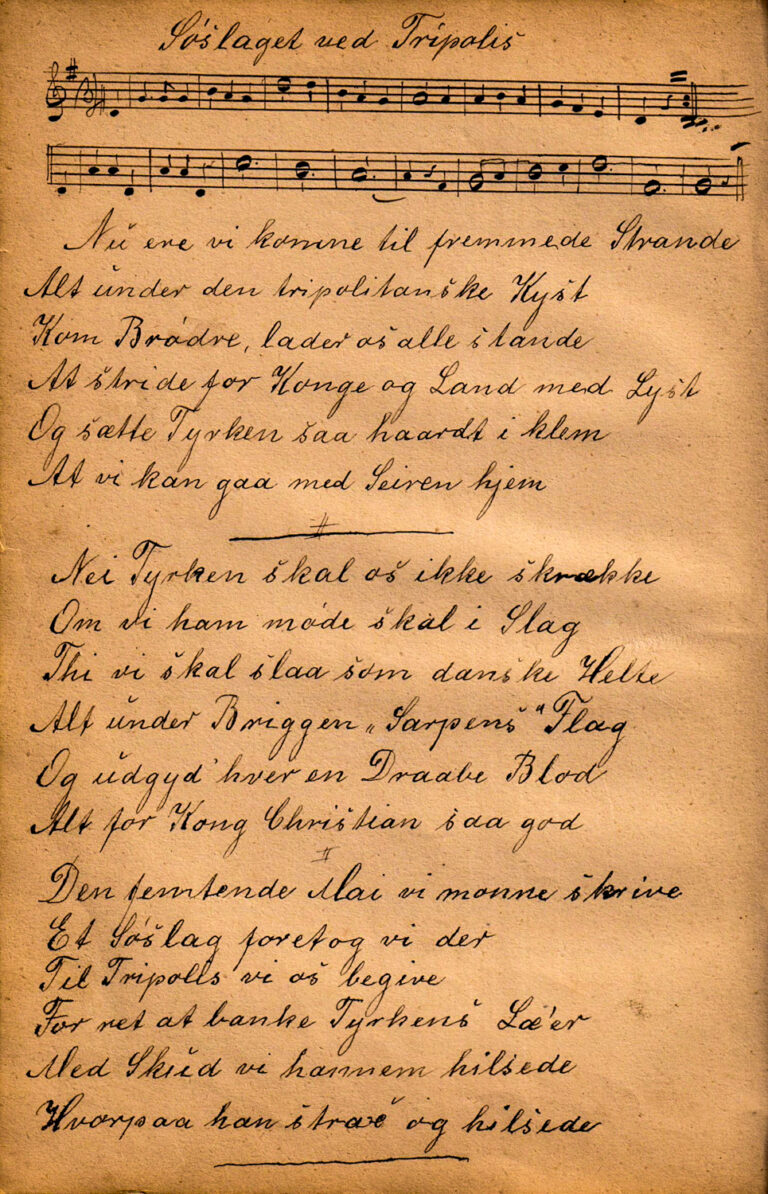 Søslaget ved Tripolis
Nu ere vi komne til fremmede Strande
Alt under den tripolitanske Kyst
Kom Brødre, lader os alle stande
At stride for Konge og Land med Lyst
Og sætte Tyrken saa haardt i klem
At vi kan gaa med Seiren hjem
Nei Tyrken skal os ikke skrække
Om vi ham møde skal i Slag
Thi vi skal slaa som danske Helte
Alt under Briggen „Sarpens“ Flag
Og udgyd' hver en Draabe Blod
Alt for Kong Christian saa god
II
Den femtende Mai vi monne skrive
Et Søslag foretog vi der
Til Tripolls vi os begive
For ret at banke Tyrkens Læ'er
Med Skud vi hannem hilsede
Hvorpaa han strax og hilsede